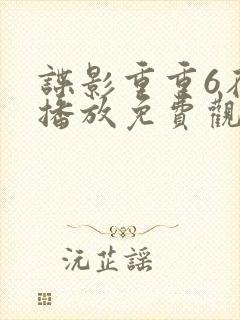 諜影重重6
播放免費觀
沅芷謡